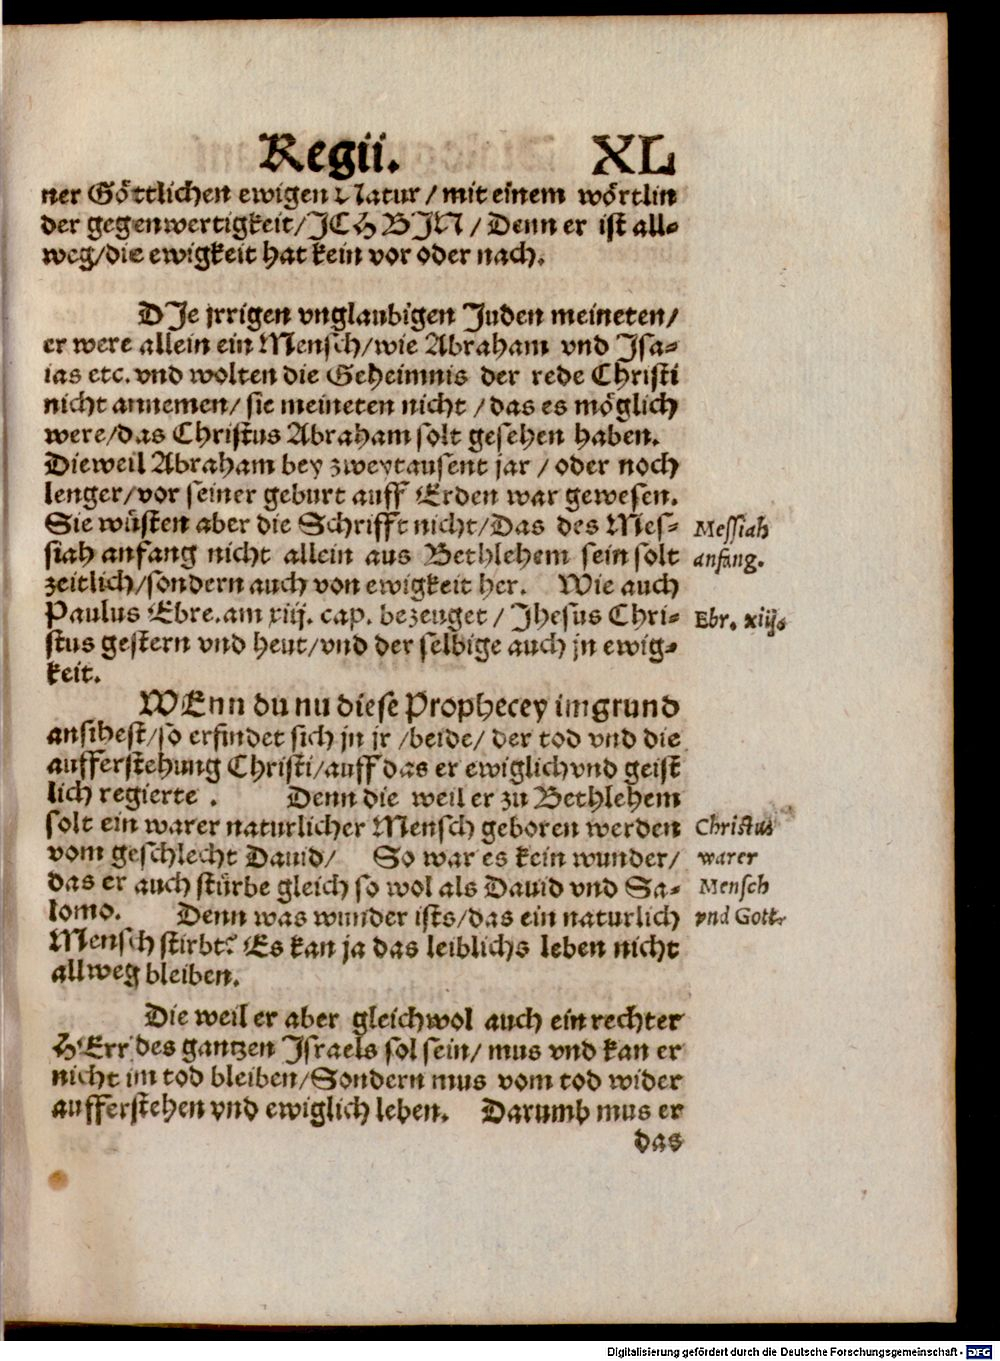 Regii. XL
ner Göttlichen ewigen Natur / mit einem wörtlin
der gegenwertigkeit/JCH BJN / Denn er ist all-
weg/die ewigkeit hat kein vor oder nach.
DJe jrrigen vnglaubigen Juden meineten/
er were allein ein Mensch/wie Abraham vnd Jsa-
ias etc. vnd wolten die Geheimnis der rede Christi
nicht annemen/ sie meineten nicht / das es möglich
were/das Christus Abraham solt gesehen haben.
Dieweil Abraham bey zweytausent jar / oder noch
lenger/vor seiner geburt auff Erden war gewesen.
Sie wüsten aber die Schrifft nicht/Das des Mes-
siah anfang nicht allein aus Bethlehem sein solt
zeitlich/sondern auch von ewigkeit her. Wie auch
Paulus Ebre. am xiij. cap. bezeuget / Jhesus Chri-
stus gestern vnd heut/vnd der selbige auch jn ewig-
keit.
Messiah
anfang.
Ebr. xiij.
WEnn du nu diese Prophecey im grund
ansihest/so erfindet sich jn jr /beide/ der tod vnd die
aufferstehung Christi/auff das er ewiglich vnd geist
lich regierte . Denn die weil er zu Bethlehem
solt ein warer naturlicher Mensch geboren werden
vom geschlecht Dauid/ So war es kein wunder/
das er auch stürbe gleich so wol als Dauid vnd Sa-
lomo. Denn was wunder ists/das ein naturlich
Mensch stirbt? Es kan ja das leiblichs leben nicht
allweg bleiben.
Christus
warer
Mensch
vnd Gott.
Die weil er aber gleichwol auch ein rechter
HErr des gantzen Jsraels sol sein/ mus vnd kan er
nicht im tod bleiben/Sondern mus vom tod wider
aufferstehen vnd ewiglich leben. Darumb mus er
das
Digitalisierung gefördert durch die Deutsche Forschungsgemeinschaft - DFG